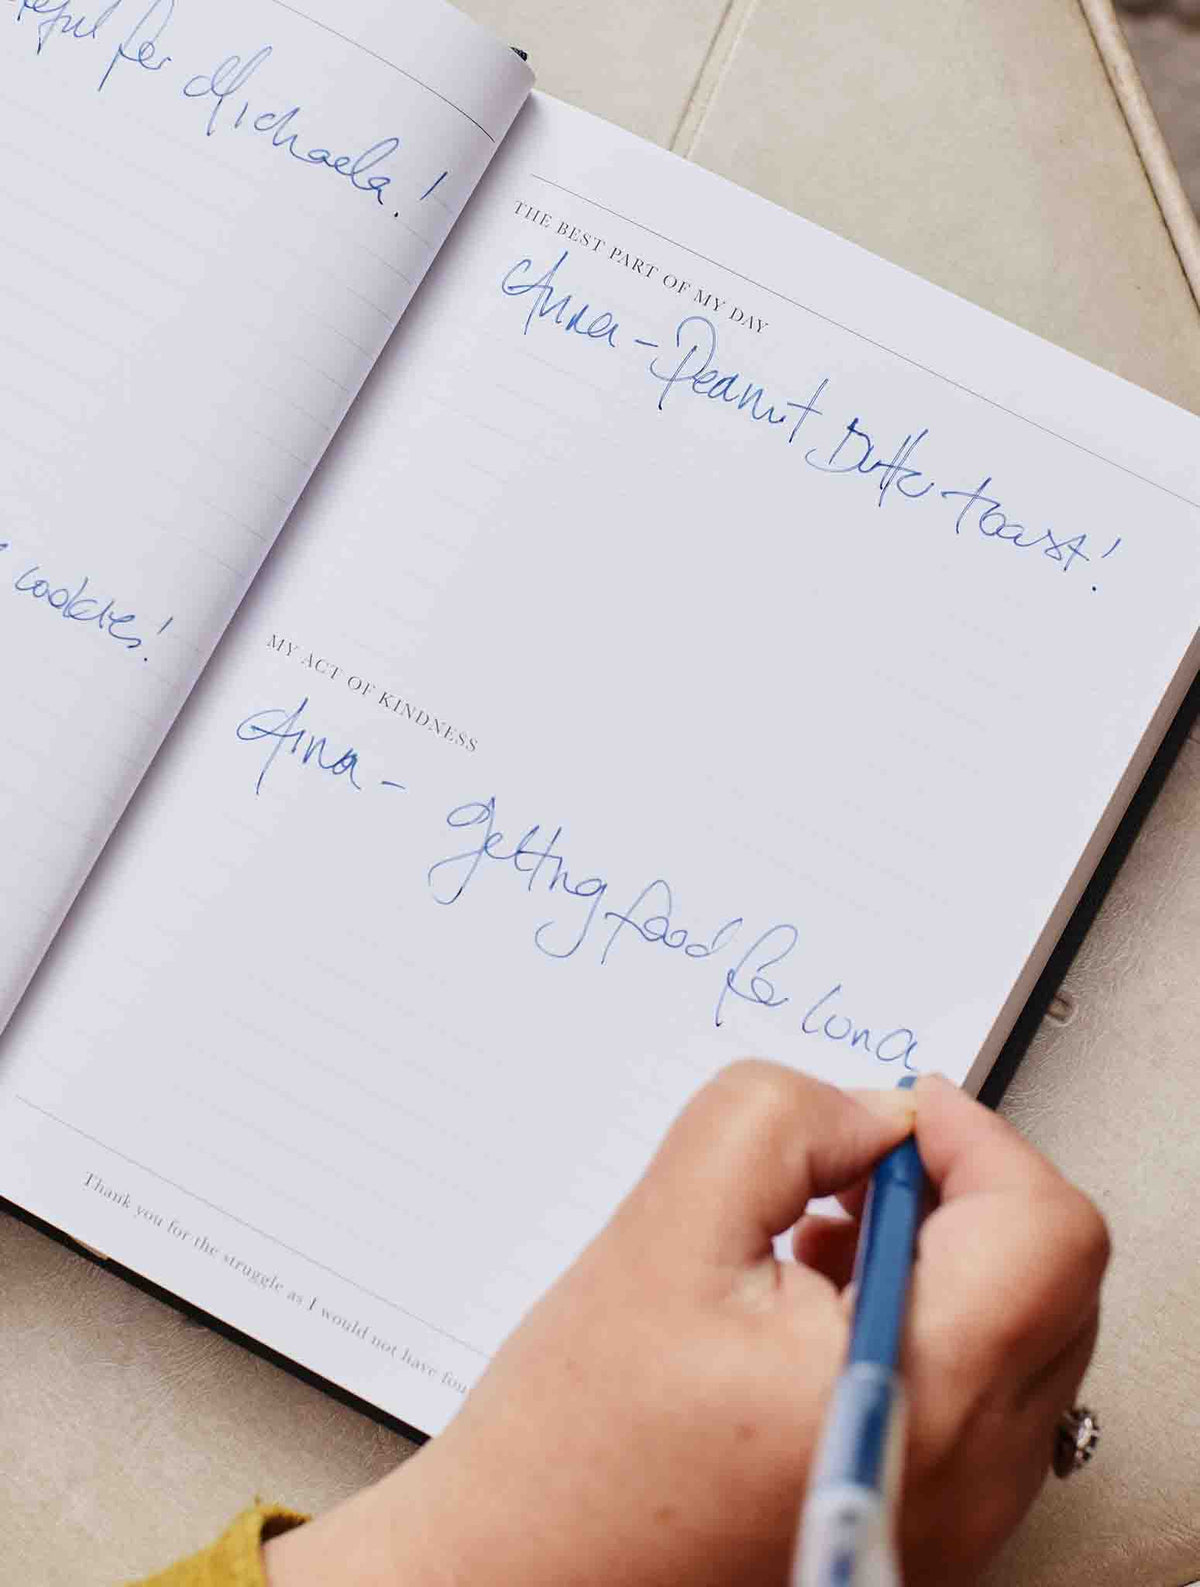 for Michaela!
cookies!
THE BEST PART OF MY DAY
Anna - Peanut Butter toast!
MY ACT OF KINDNESS
Anna - getting food for luna
Thank you for the struggle as I would not have fou